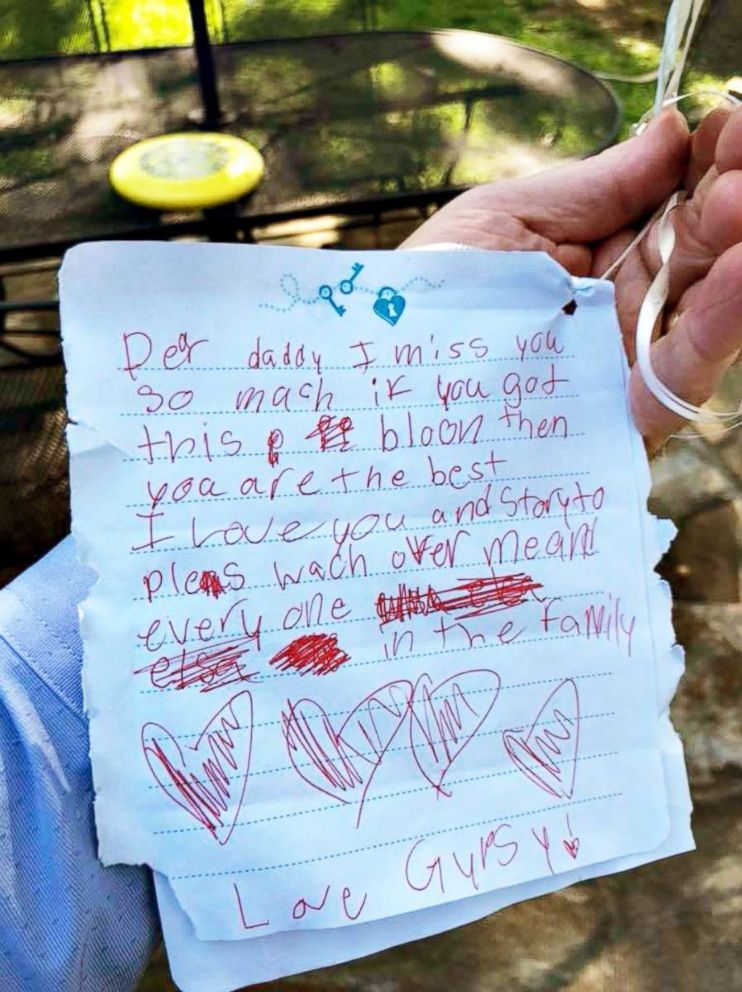 Der daddy I miss you
so mach if you got
this bloon then
you are the best
I Love you and Story to
plens wach over me and
every one
in the family
Love Gypsy!